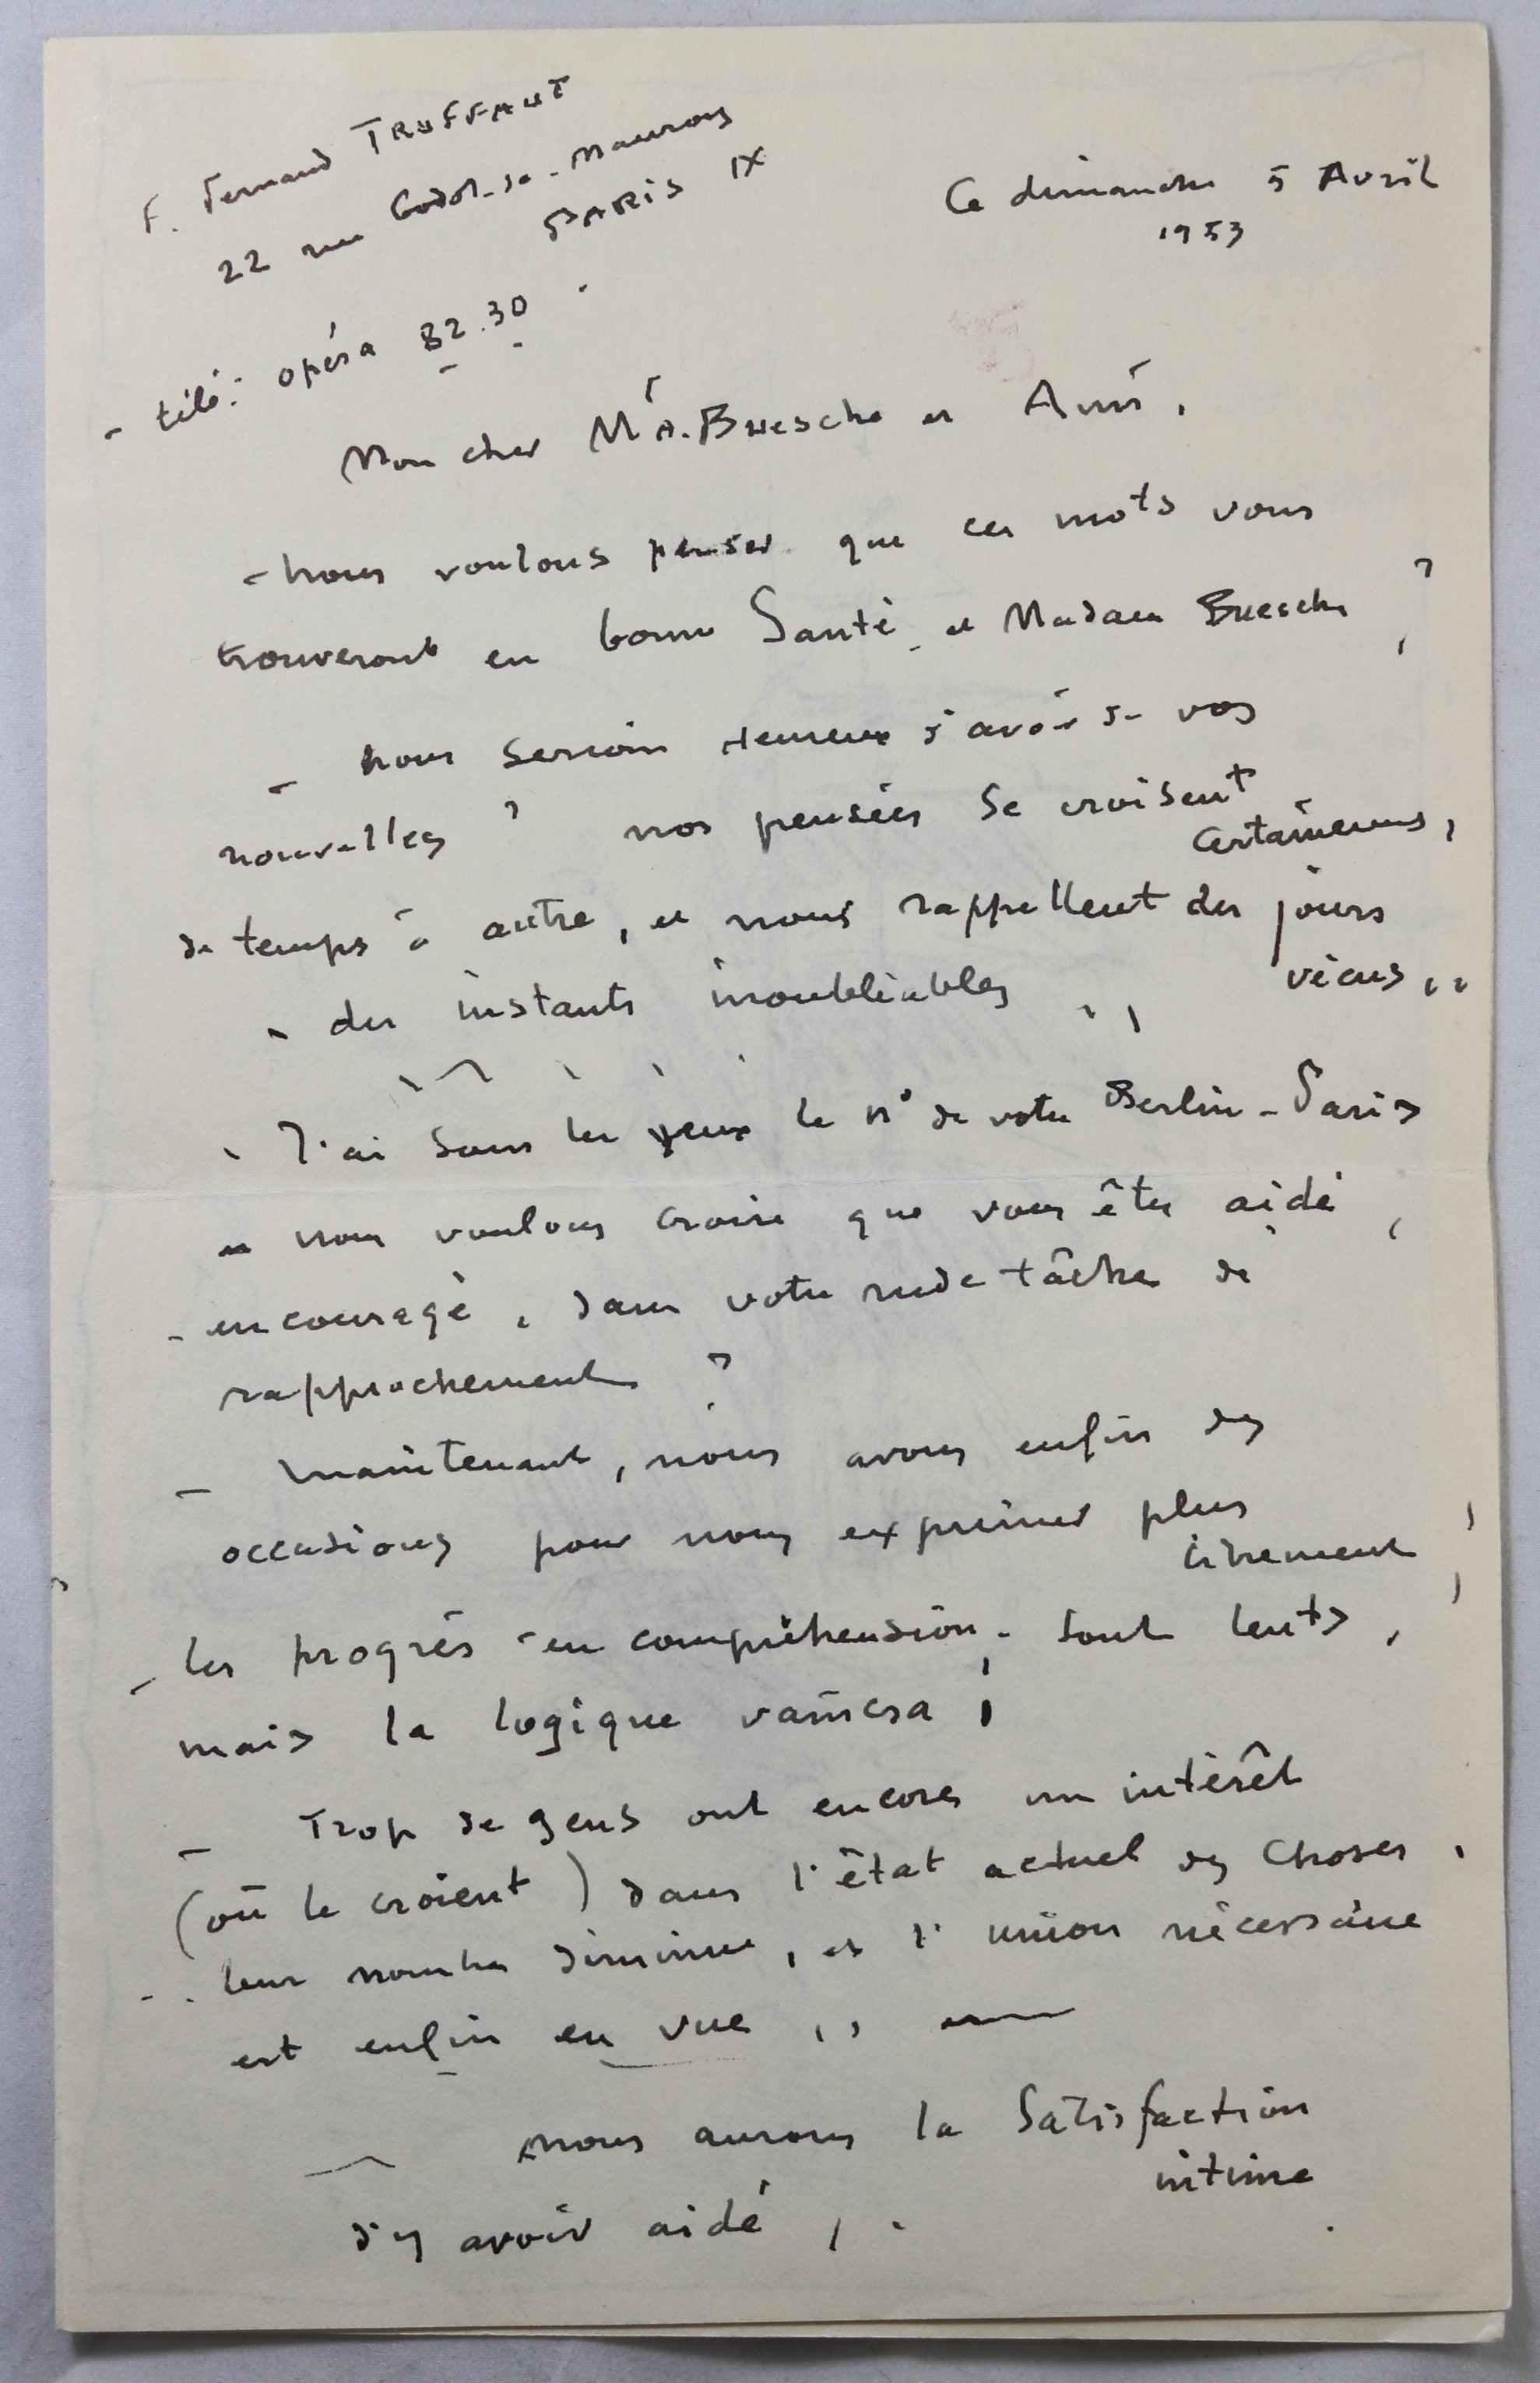 F. Fernand TRUFFAUT
22 rue Godot-de-Mauroy
PARIS IX
- télé: opéra 82.30.
Ce dimanche 5 Avril
1953
Mon cher Mr A. Buesche et Ami,
- nous voulons penser que ces mots vous
trouveront en bonne Santé, et Madame Buesche ?
- nous serions Heureux d'avoir de vos
nouvelles ? nos pensées se croisent
certainement,
de temps à autre, et nous rappellent des jours
vécus,,
- des instants inoubliables ,,
- J'ai sous les yeux le n° de votre Berlin-Paris
et nous voulons croire que vous êtes aidé,
- encouragé, dans votre rude tâche de
rapprochement ?
- maintenant, nous avons enfin des
occasions pour nous exprimer plus
librement !
- les progrès en compréhension - sont lents,
mais la logique vaincra !
- Trop de gens ont encore un intérêt
(ou le croient) dans l'état actuel des Choses,
- leur nombre diminue, et l'union nécessaire
est enfin en vue ,, —
- nous aurons la Satisfaction
intime
d'y avoir aidé ,.